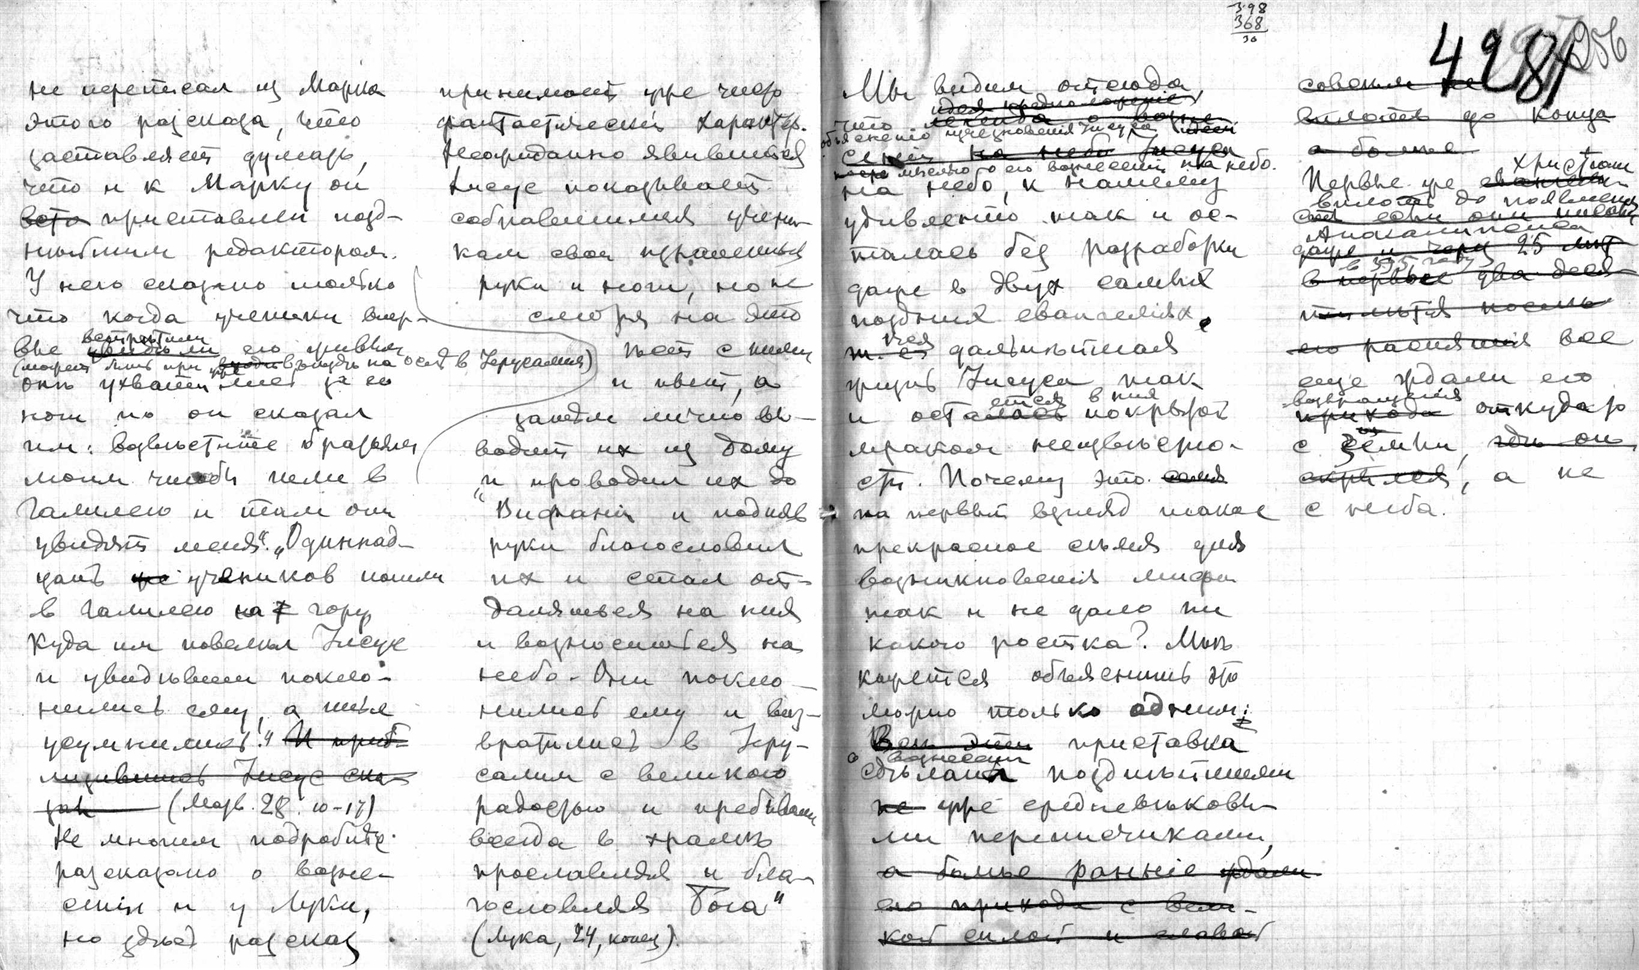 не переписал из Марка
этого разсказа, что
заставляет думать,
что и к Марку он
приставлен позд-
нейшим редактором.
У него сказано только
что когда ученики впер-
вые встретили его живым
(может быть при въезде на осле в Иерусалим)
они ухватились за его
ноги но он сказал
им: возвестите братьям
моим чтобы шли в
Галилею и там они
увидят меня". "Одиннад-
цать учеников пошли
в Галилею на гору
куда им повелел Иисус
и увидевши покло-
нились ему, а иные
усумнились!" И приб-
лизившись Иисус ска-
зал (Матв. 28. 10-17)
Не многим подробнее
разсказано о возне-
сении и у Луки,
но здесь разсказ
принимает уже чисто
фантастический характер.
Неожиданно явившийся
Иисус показывает
собравшимся учени-
кам свои израненные
руки и ноги, но не
смотря на это
пьет с ними
и ест, а
затем лично вы-
водит их из дому
"и проводил их до
Вифании и подняв
руки благословил
их и стал от-
даляться на них
и возноситься на
небо. Они покло-
нились ему и воз-
вратились в Иеру-
салим с великою
радостью и пребывали
всегда в храме
прославляя и бла-
гословляя Бога"
(Лука, 24, конец).
398
368
30
428
256
Мы видим отсюда,
что легенда о возне-
объяснения исчезновения Иисуса
сении на небо Иисуса
мыслью о его вознесении на небо.
на небо, к нашему
удивлению так и ос-
талась без разработки
даже в двух самых
поздних евангелиях.
дальнейшая
жизнь Иисуса так
и остается в них покрытой
мраком неизвестно-
сти. Почему это
на первый взгляд такое
прекрасное семя для
возникновения мифа
так и не дало ни
какого ростка? Мне
кажется объяснить это
можно только одним:
Вся эта приставка
о вознесении
сделана позднейшими
уже средневековы-
ми переписчиками,
а более ранние ждали
его прихода с вели-
кой силой и славой
совсем не
вплоть до конца
а более
Первые же христиане
вплоть до появления
Апокалипсиса
даже и через 25 лет
в 395 году
в первые два деся-
тилетия после
его распятия все
еще ждали его
возвращения откуда то
с земли, где он
скрылся, а не
с неба.